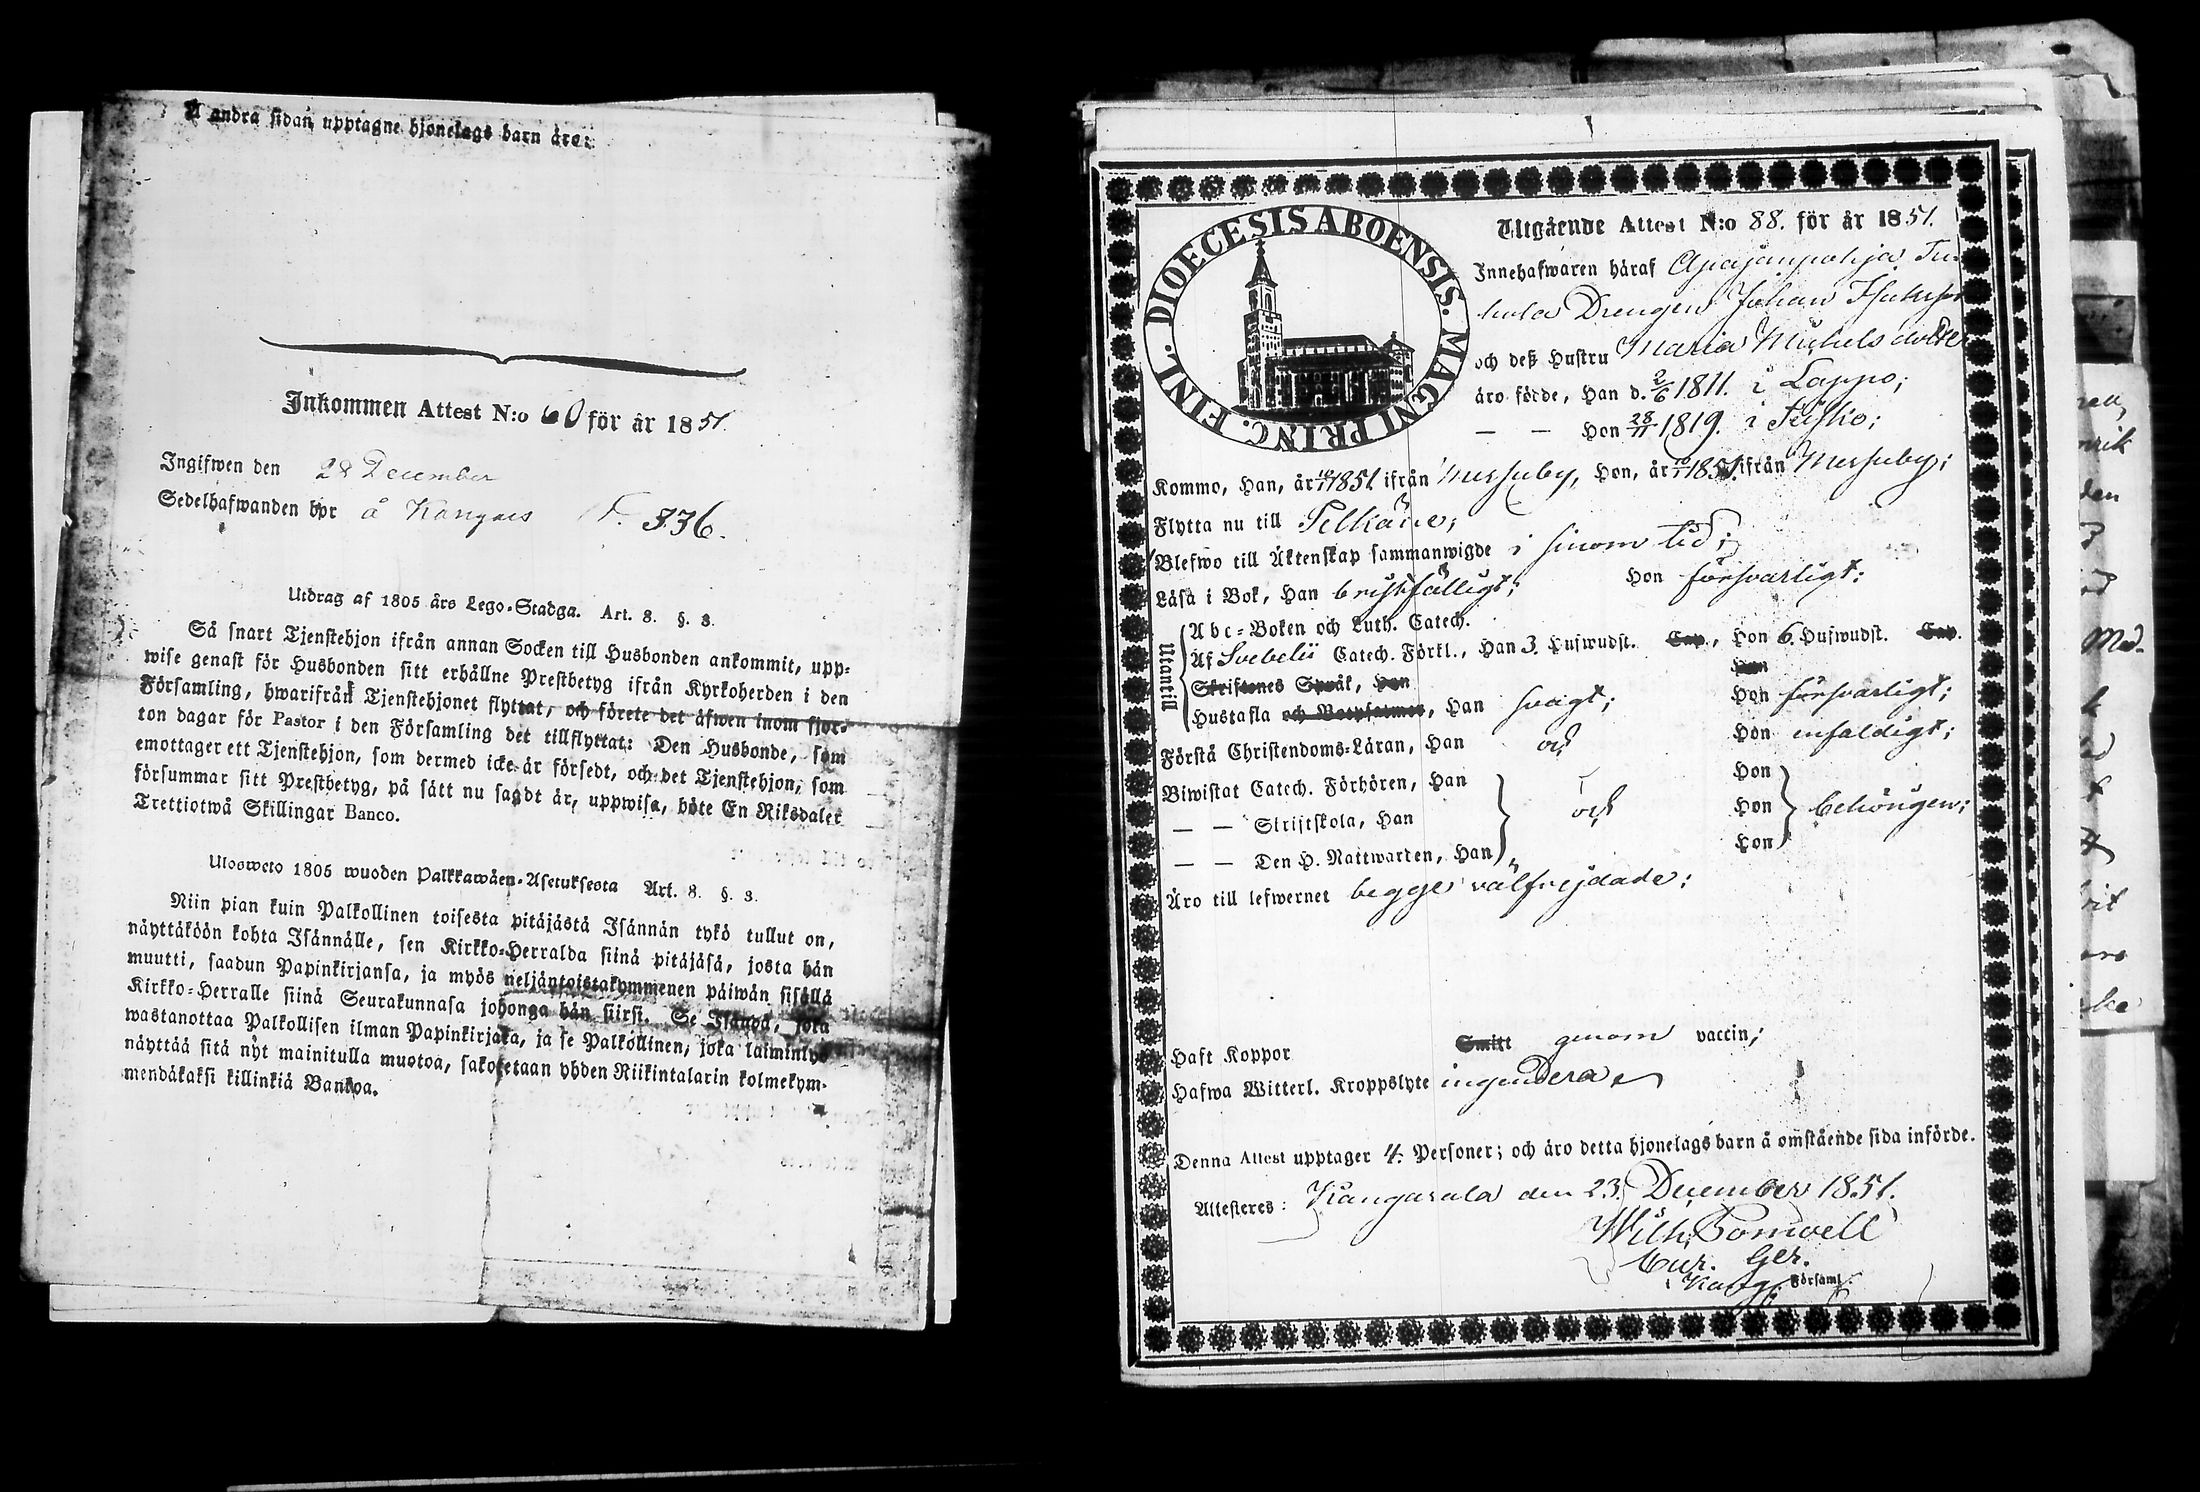 Å andra sidan upptagne hjonelags barn äro:
Inkommen Attest N:o 60 för år 1851.
Ingifwen den 28 December
Sedelhafwanden bor å Kangais F. 336.
Utdrag af 1805 års Lego-Stadga. Art. 8. §. 3.
Så snart Tjenstehjon ifrån annan Socken till Husbonden ankommit, upp-
wise genast för Husbonden sitt erhållne Prestbetyg ifrån Kyrkoherden i den
Församling, hwarifrån Tjenstehjonet flyttat, och förete det äfwen inom fjor-
ton dagar för Pastor i den Församling det tillflyttat: Den Husbonde, som
emottager ett Tjenstehjon, som dermed icke är försedt, och det Tjenstehjon, som
försummar sitt Prestbetyg, på sätt nu sagdt är, uppwisa, böte En Riksdaler
Trettiotwå Skillingar Banco.
Ulosweto 1805 wuoden Palkkawäen-Asetuksesta Art. 8. §. 3.
Niin pian kuin Palkollinen toisesta pitäjästä Isännän tykö tullut on,
näyttäköön kohta Isännälle, sen Kirkko-Herralda siinä pitäjäsä, josta hän
muutti, saadun Papinkirjansa, ja myös neljäntoistakymmenen päiwän sisällä
Kirkko-Herralle siinä Seurakunnasa johonga hän siirsi. Se Isändä, joka
wastanottaa Palkollisen ilman Papinkirjata, ja se Palkollinen, joka laiminlyö
näyttää sitä nyt mainitulla muotoa, sakotetaan yhden Riikintalarin kolmekym-
mendäkaksi killinkiä Bankoa.
DIOECESIS ABOENSIS. MAGNI PRINC. FINL.
Utgående Attest N:o 88. för år 1851.
Innehafwaren häraf Apajanpohja
Drengen Johan
och deß Hustru Maria Michelsdotter
äro födde, Han d. 2/6 1811. i Lappo;
— — Hon 28/11 1819. i
Kommo, Han, år 1851. ifrån Messuby, Hon, år 1851. ifrån Messuby;
Flytta nu till Pelkäne;
Blefwo till Äktenskap sammanwigde i sinom tid;
Läsa i Bok, Han bristfälligt; Hon försvarligt:
Utantill
Abc-Boken och Luth. Catech.
Af Svebelii Catech. Förkl., Han 3. Hufwudst. Cap., Hon 6. Hufwudst. Cap.
Skriftenes Språk, Han Hon
Hustafla och Botpsalmer, Han svagt; Hon försvarligt;
Förstå Christendoms-Läran, Han och Hon enfaldigt;
Biwistat Catech. Förhören, Han Hon
— — Skriftskola, Han och Hon behörigen;
— — Den H. Nattwarden, Han Hon
Äro till lefwernet begge välfrejdade:
Haft Koppor Smitt genom vaccin;
Hafwa Witterl. Kroppslyte ingendera
Denna Attest upptager 4. Personer; och äro detta hjonelags barn å omstående sida införde.
Attesteres: Kangasala den 23. December 1851.
Wilh. Bonwell
Cur. Ger.
i Kang. Församl.